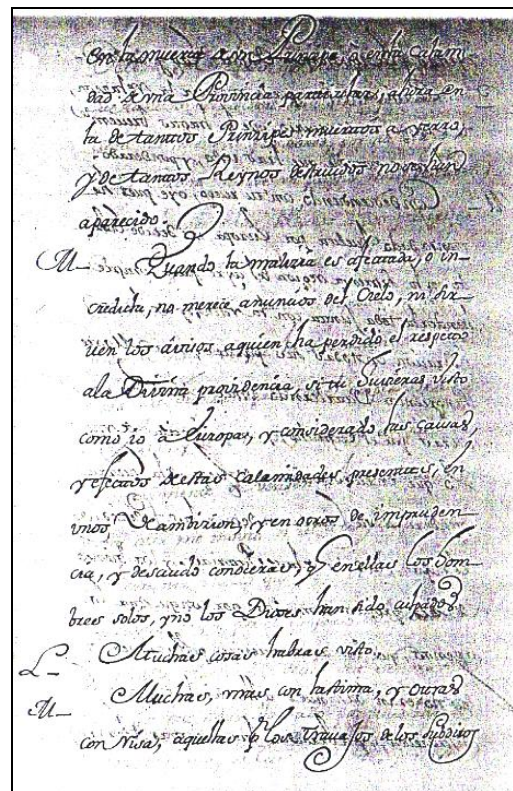 en la muerte de un Principe, ò en la Calami-
dad de una Provincia particular, ahora en
la de tantos Principes muertos a yerro,
y de tantos Reynos destruidos no se han
aparecido.
M— Quando la malizia es afectada, o in-
credula, no merece anuncios del Cielo, ni sir-
uen los avisos aquien ha perdido el respecto
ala Divina providencia, si tu huvieras visto
como io à Europa, y considerado las causas,
y efectos destas calamidades presentes, en
vnos de ambicion, y en otros de impruden-
cia, y descuido conocieras, q̃ en ellas los hom-
bres solos, y no los Dioses han sido culpados
L— Muchas cosas habras visto.
M— Muchas, vnas con lastima, y otras
con risa, aquellas p̃ los trauajos de los subditos